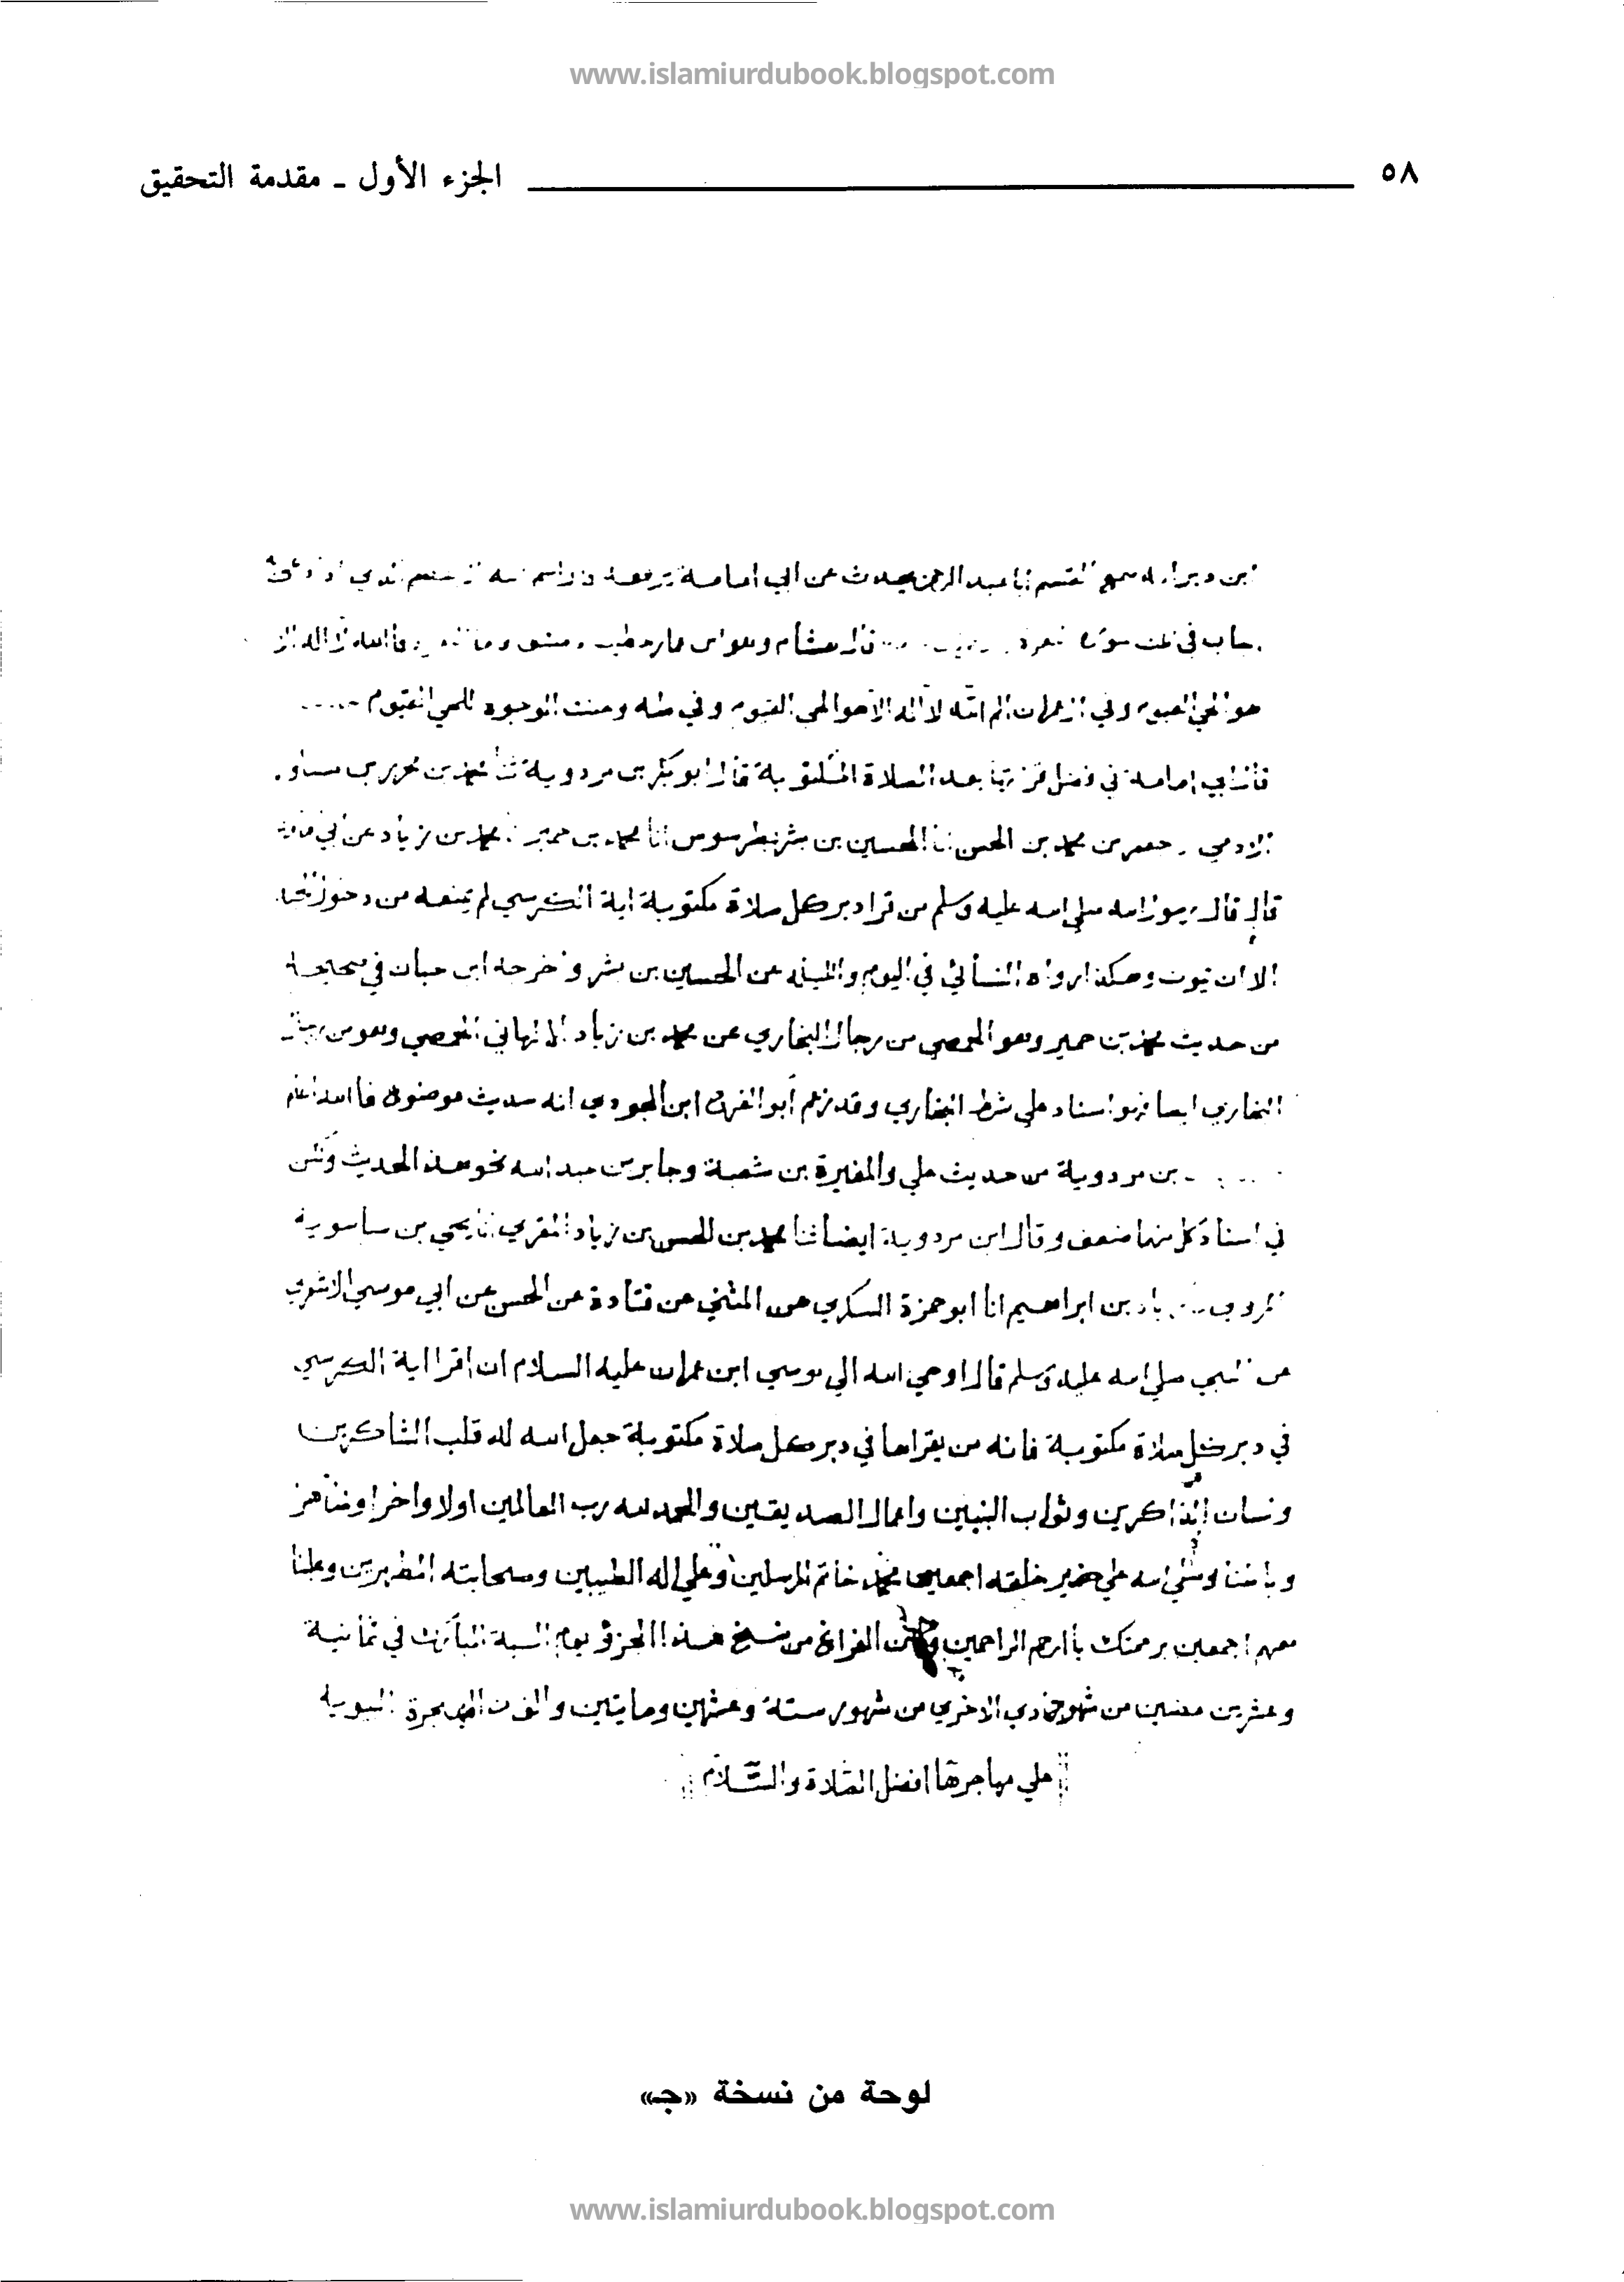 www.islamiurdubook.blogspot.com
٥٨ الجزء الأول ـ مقدمة التحقيق
القسم ابا عبد الرحمن يحدث عن ابي امامة يرفعه
في ثلث سورة قال هشام وهو ابن عمار خطيب دمشق
هو الحي القيوم وفي ال عمران الم الله لا اله الا هو الحي القيوم وفي طه وعنت الوجوه للحي القيوم
ابي امامة في فضل بعد الصلاة المكتوبة قال ابو بكر بن مردوية ثنا محمد بن محرز بن
الادمي جعفر بن محمد بن الحسن انا الحسين بن بشر بطرسوس انا محمد بن حمير محمد بن زياد عن ابي
قال قال رسول الله صلي الله عليه وسلم من قرا دبر كل صلاة مكتوبة اية الكرسي لم يمنعه من دخول
الا ان يموت وهكذا رواه النسائي في اليوم والليله عن الحسين بن بشر واخرجه ابن حبان في صحيحه
من حديث محمد بن حمير وهو الحمصي من رجال البخاري عن محمد بن زياد الالهاني الحمصي وهو من رجال
البخاري ايضا فهو اسناد علي شرط البخاري وقد زعم ابو الفرج ابن الجوزي انه حديث موضوع فالله اعلم
بن مردوية من حديث علي والمغيرة بن شعبة وجابر بن عبد الله نحو هذا الحديث ولكن
في اسناد كل منها ضعف وقال ابن مردوية ايضا ثنا محمد بن الحسن بن زياد المقري انا يحي بن
بن ابراهيم انا ابو حمزة السكري عن المثني عن قتادة عن الحسن عن ابي موسي الاشعري
عن النبي صلي الله عليه وسلم قال اوحي الله الي موسي ابن عمران عليه السلام ان اقرا اية الكرسي
في دبر كل صلاة مكتوبة فانه من يقراها في دبر كل صلاة مكتوبة جعل الله له قلب الشاكرين
ولسان الذاكرين وثواب النبيين واعمال الصديقين والحمد لله رب العالمين اولا واخرا وظاهر
وباطنا وصلي الله علي خير خلقه اجمعين محمد خاتم المرسلين وعلي اله الطيبين وصحابته المطهرين وعلينا
معهم اجمعين برحمتك يا ارحم الراحمين الفراغ من نسخ هذا الجزو يوم السبت المبارك في ثمانية
وعشرين مضين من شهر جمادي الاخري من شهور ستة وعشرين ومايتين والف من الهجرة النبوية
علي مهاجرها افضل الصلاة والسلام
لوحة من نسخة «جـ»
www.islamiurdubook.blogspot.com